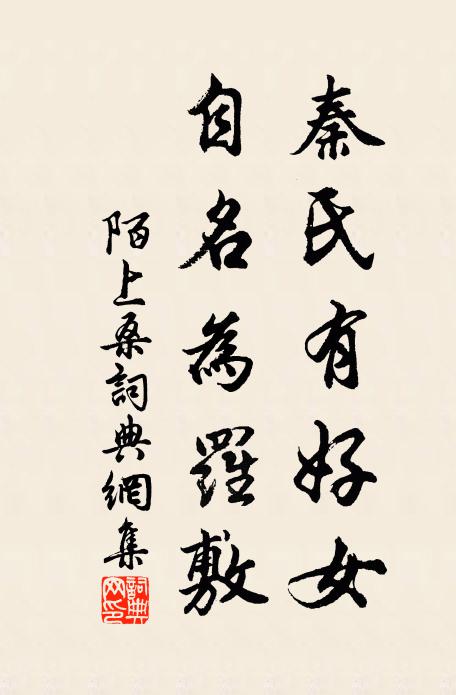 秦氏有好女
自名為羅敷
陌上桑詞典網集
詞典
网印